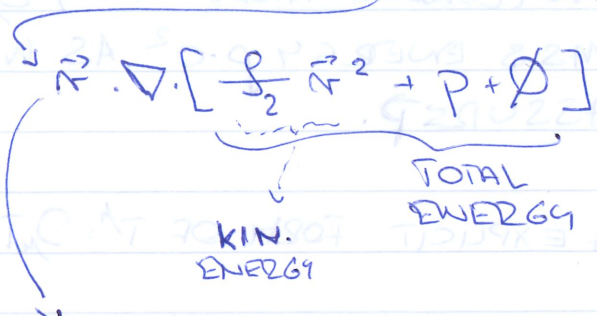 v⃗ · ∇ · [ ρ/2 v⃗² + p + Ø ]
TOTAL
ENERGY
KIN.
ENERGY